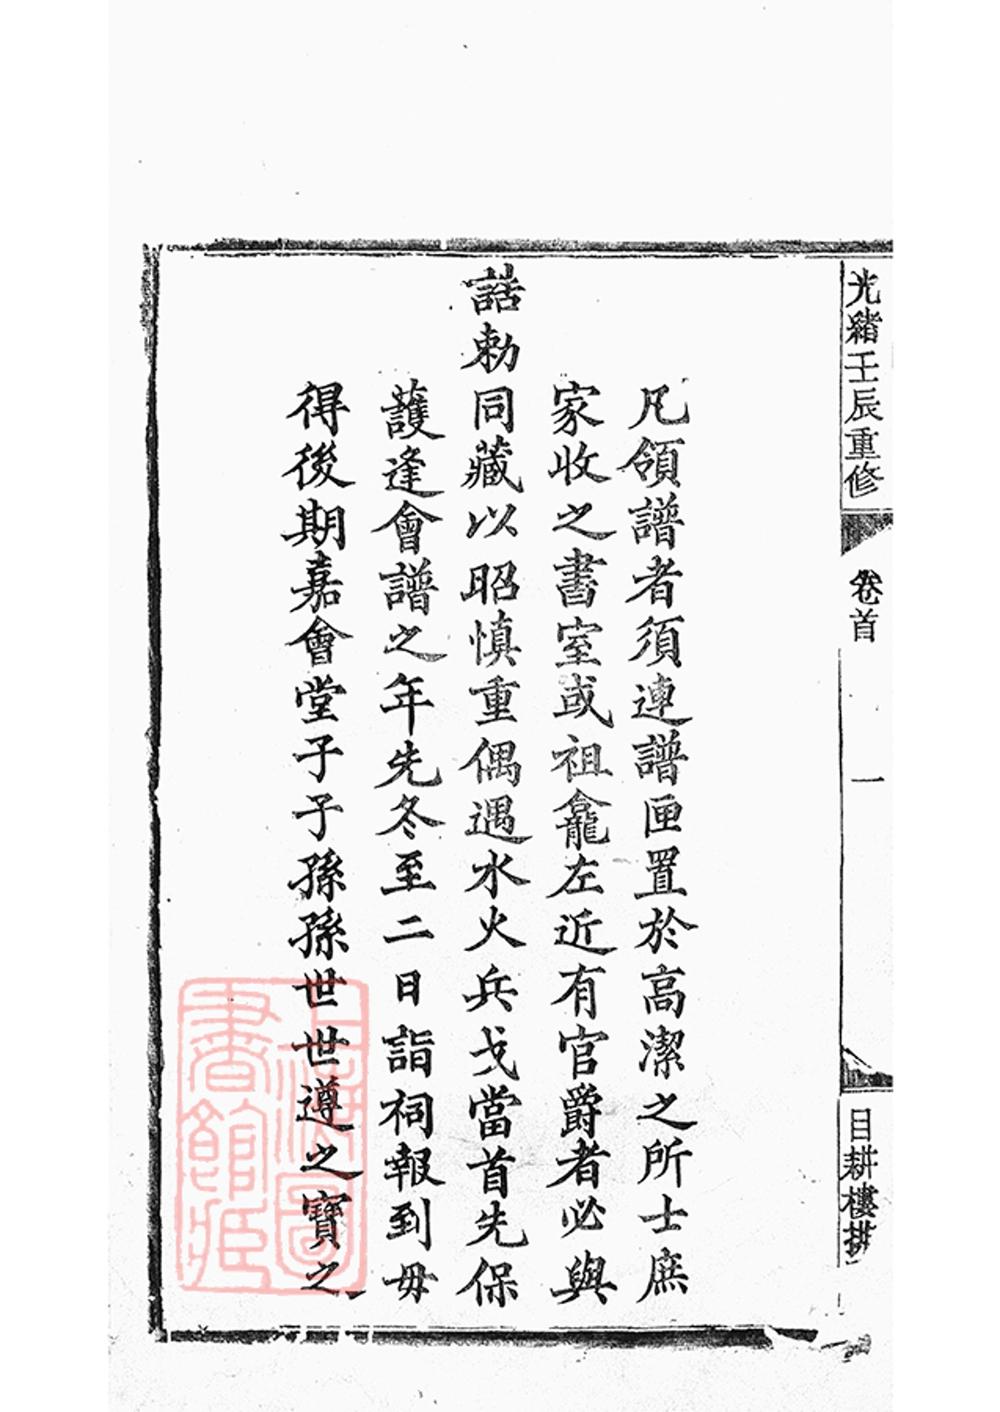 光緒壬辰重修
卷首
一
目耕樓
凡領譜者須連譜匣置於高潔之所士庶
家收之書室或祖龕左近有官爵者必與
誥勅同藏以昭慎重偶遇水火兵戈當首先保
護逢會譜之年先冬至二日詣祠報到毋
得後期嘉會堂子子孫孫世世遵之寶之
上海圖
書館藏